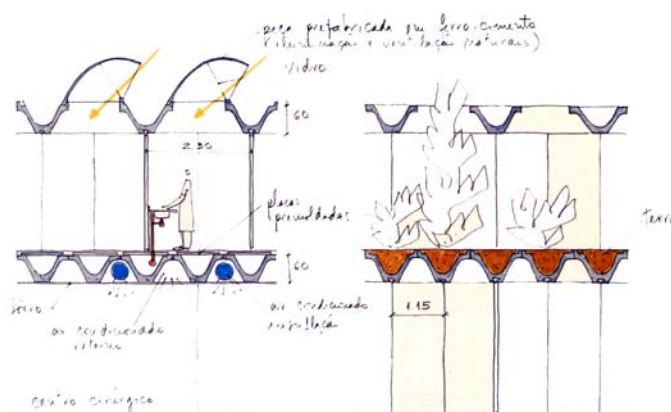 peça prefabricada em ferro-cimento
(iluminação e ventilação naturais)
vidro
60
2.30
placas
premoldadas
terra
60
forro
ar condicionado
retorno
ar condicionado
insuflação
115
centro cirúrgico